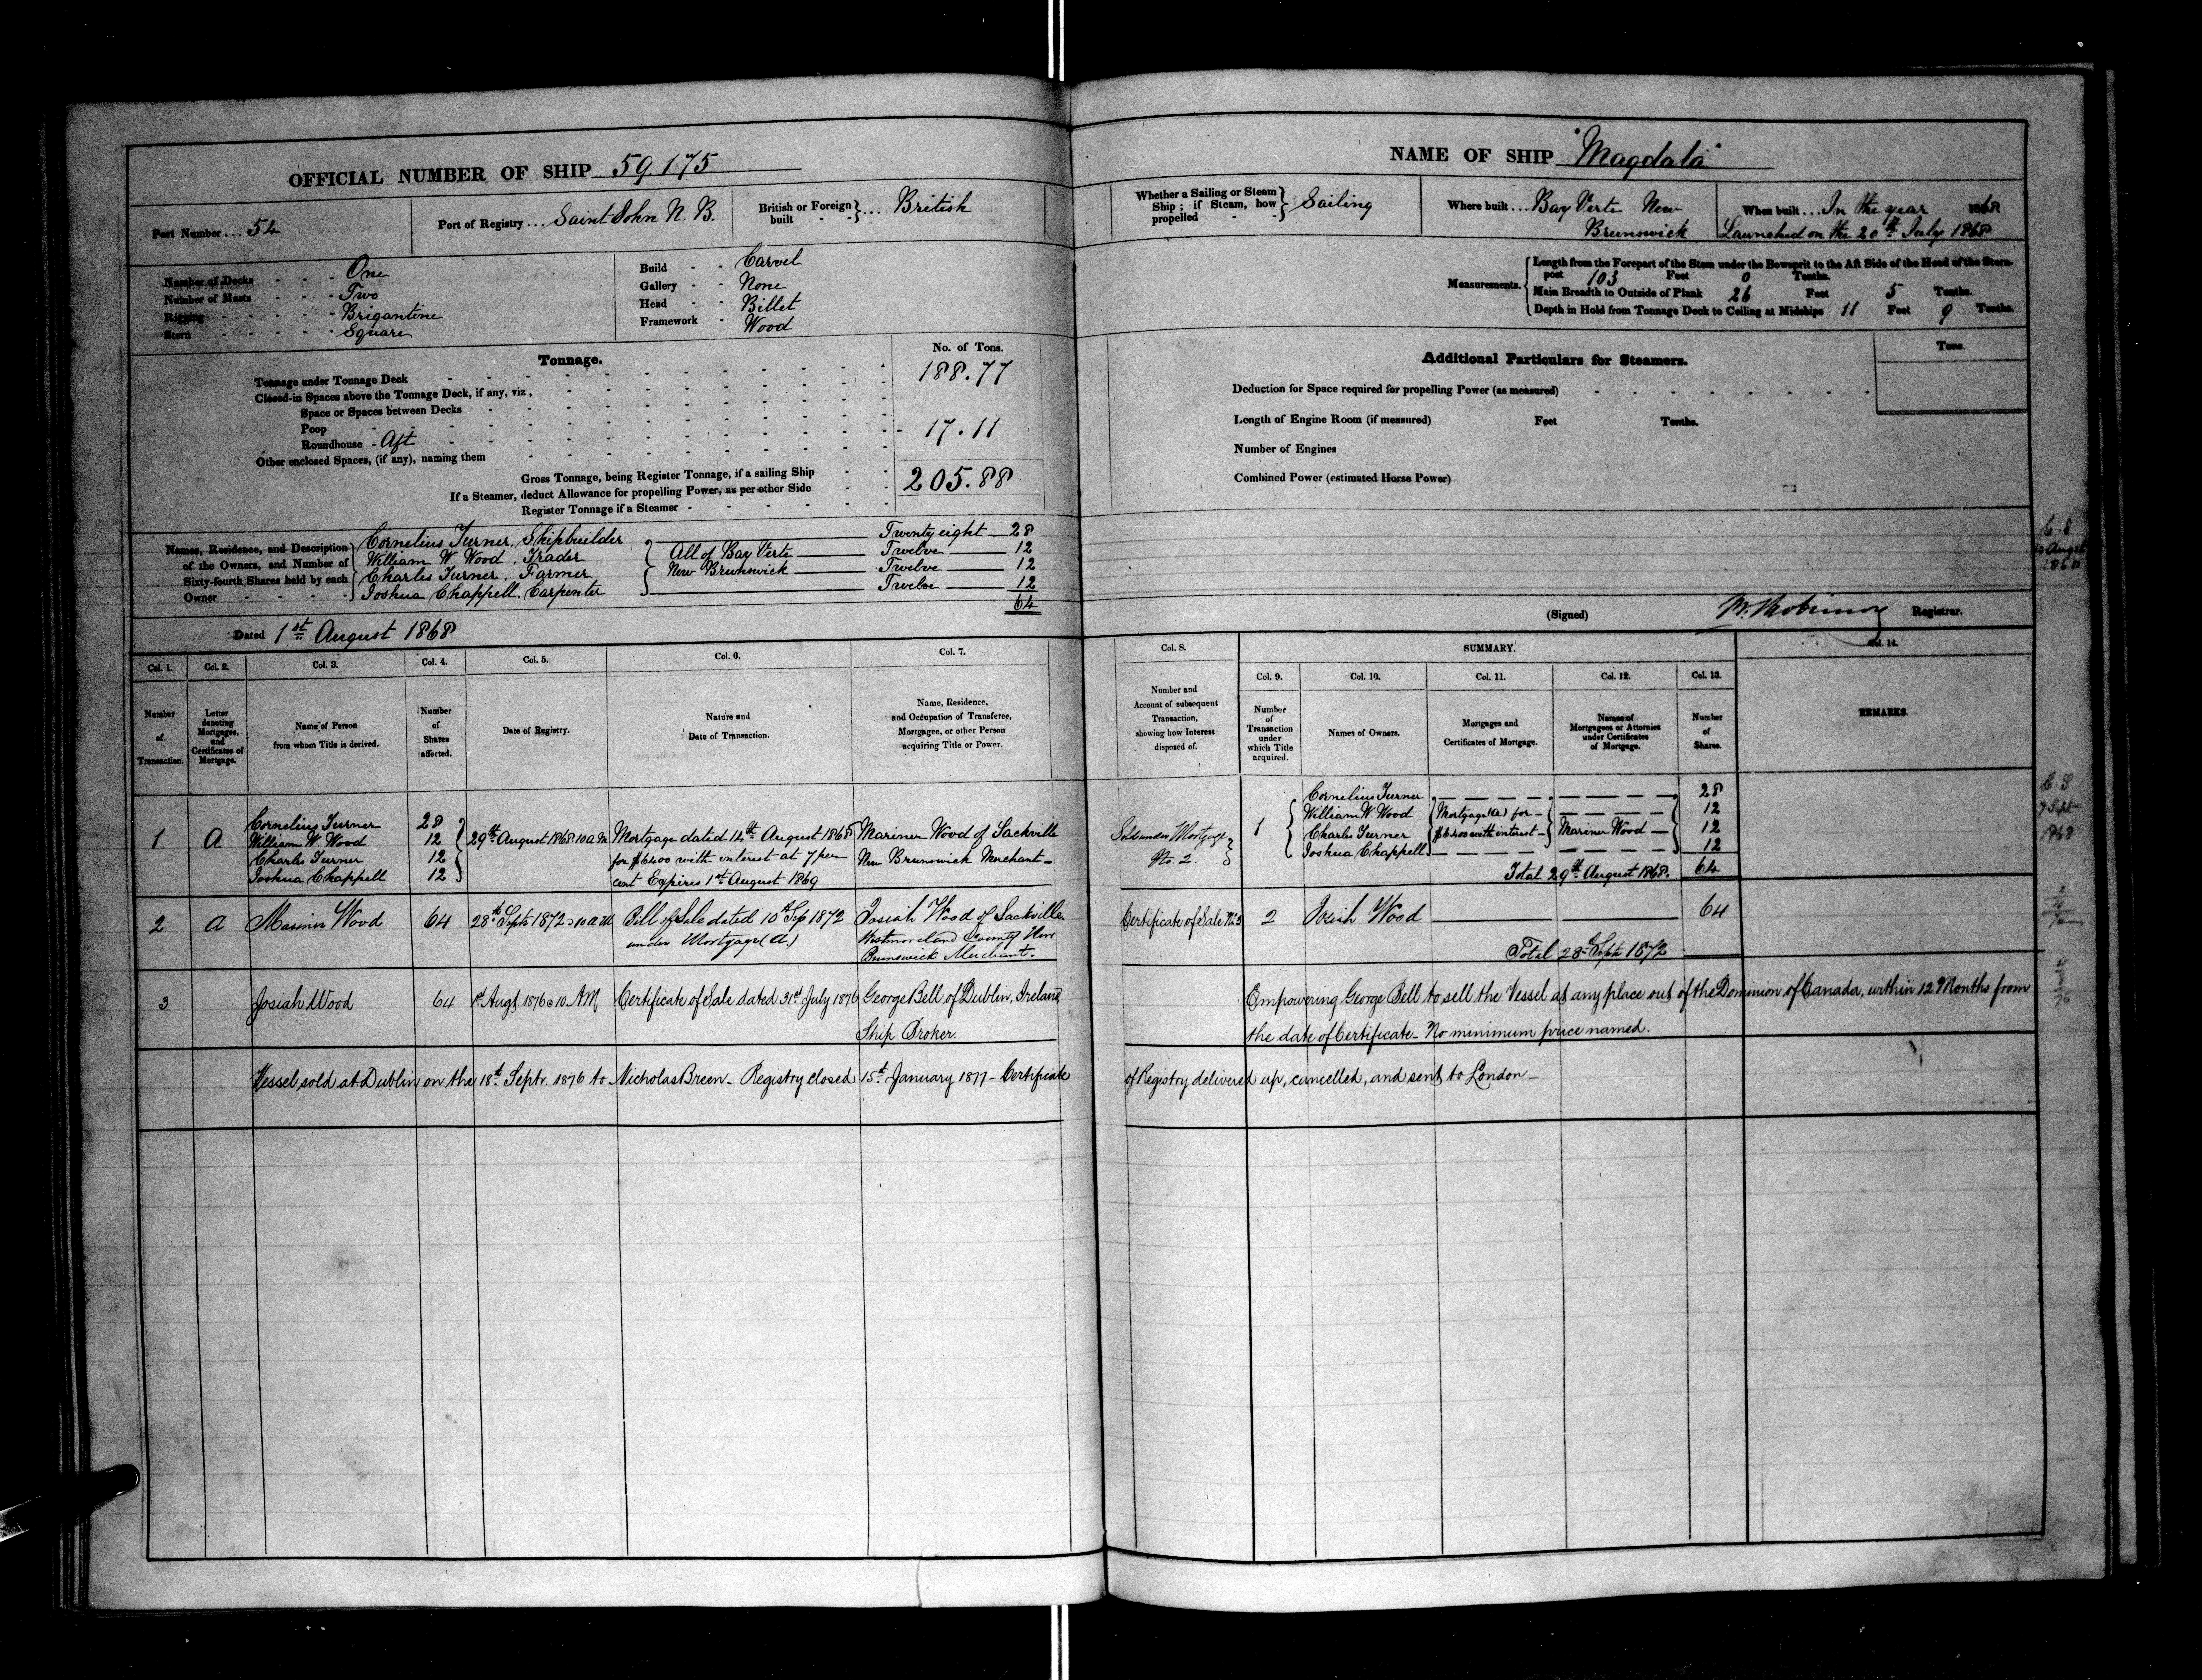 OFFICIAL NUMBER OF SHIP 59.175
Port Number ... 54
Port of Registry ... Saint John N. B.
British or Foreign built - - } ... British
Number of Decks - - - One
Number of Masts - - - Two
Rigging - - - Brigantine
Stern - - - Square
Build - - Carvel
Gallery - - None
Head - - Billet
Framework - Wood
Tonnage.
No. of Tons.
Tonnage under Tonnage Deck 188.77
Closed-in Spaces above the Tonnage Deck, if any, viz,
Space or Spaces between Decks
Poop
Roundhouse - Aft 17.11
Other enclosed Spaces, (if any), naming them
Gross Tonnage, being Register Tonnage, if a sailing Ship 205.88
If a Steamer, deduct Allowance for propelling Power, as per other Side
Register Tonnage if a Steamer
Names, Residence, and Description of the Owners, and Number of Sixty-fourth Shares held by each Owner
Cornelius Turner, Shipbuilder Twenty eight 28
William W Wood, Trader Twelve 12
Charles Turner, Farmer Twelve 12
Joshua Chappell, Carpenter Twelve 12
All of Bay Verte
New Brunswick
64
Dated 1st August 1868
NAME OF SHIP "Magdala"
Whether a Sailing or Steam Ship; if Steam, how propelled - - } Sailing
Where built ... Bay Verte New Brunswick
When built ... In the year 1868
Launched on the 20th July 1868
Measurements.
Length from the Forepart of the Stem under the Bowsprit to the Aft Side of the Head of the Stern-
post 103 Feet 0 Tenths.
Main Breadth to Outside of Plank 26 Feet 5 Tenths.
Depth in Hold from Tonnage Deck to Ceiling at Midships 11 Feet 9 Tenths.
Additional Particulars for Steamers.
Tons.
Deduction for Space required for propelling Power (as measured)
Length of Engine Room (if measured) Feet Tenths.
Number of Engines
Combined Power (estimated Horse Power)
(Signed) Registrar.
Col. 1. Col. 2. Col. 3. Col. 4. Col. 5. Col. 6. Col. 7.
Number of Transaction.
Letter denoting Mortgages, and Certificates of Mortgage.
Name of Person from whom Title is derived.
Number of Shares affected.
Date of Registry.
Nature and Date of Transaction.
Name, Residence, and Occupation of Transferee, Mortgagee, or other Person acquiring Title or Power.
Col. 8.
SUMMARY.
Col. 9. Col. 10. Col. 11. Col. 12. Col. 13.
Col. 14.
Number and Account of subsequent Transaction, showing how Interest disposed of.
Number of Transaction under which Title acquired.
Names of Owners.
Mortgages and Certificates of Mortgage.
Names of Mortgagees or Attornies under Certificates of Mortgage.
Number of Shares.
REMARKS.
1 A
Cornelius Turner 28
William W. Wood 12
Charles Turner 12
Joshua Chappell 12
29th August 1868 10 a.m
Mortgage dated 14th August 1868
for $6400 with interest at 7 per
cent Expires 1st August 1869
Mariner Wood of Sackville
New Brunswick Merchant
Sold under Mortgage
No. 2.
1
Cornelius Turner 28
William W Wood 12
Charles Turner 12
Joshua Chappell 12
Mortgage (A) for
$6400 with interest
Mariner Wood
Total 29th August 1868. 64
2 A Mariner Wood 64 28th Septr 1872 10 a.m
Bill of Sale dated 10th Sep 1872
under Mortgage (A.)
Josiah Wood of Sackville
Westmoreland County New
Brunswick Merchant.
Certificate of Sale No 3
2 Josiah Wood 64
Total 28 Septr 1872
3 Josiah Wood 64 1st Augt 1876 10 AM
Certificate of Sale dated 31st July 1876
George Bell of Dublin, Ireland
Ship Broker.
Empowering George Bell to sell the Vessel at any place out of the Dominion of Canada, within 12 Months from
the date of Certificate - No minimum price named.
Vessel sold at Dublin on the 18th Septr. 1876 to Nicholas Breen - Registry closed 15th January 1877 - Certificate
of Registry delivered up, cancelled, and sent to London -
C. S
7 Sept
1868